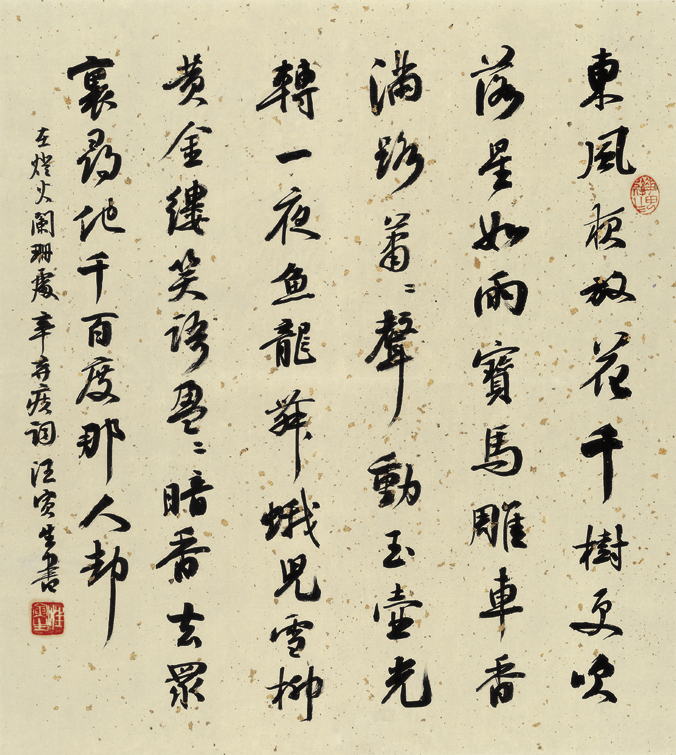 東風夜放花千樹更吹
落星如雨寶馬雕車香
滿路蕭〻聲動玉壺光
轉一夜魚龍舞蛾兒雪柳
黄金縷笑語盈〻暗香去眾
裏尋他千百度那人却
在燈火闌珊處辛弃疾詞汪寅生書